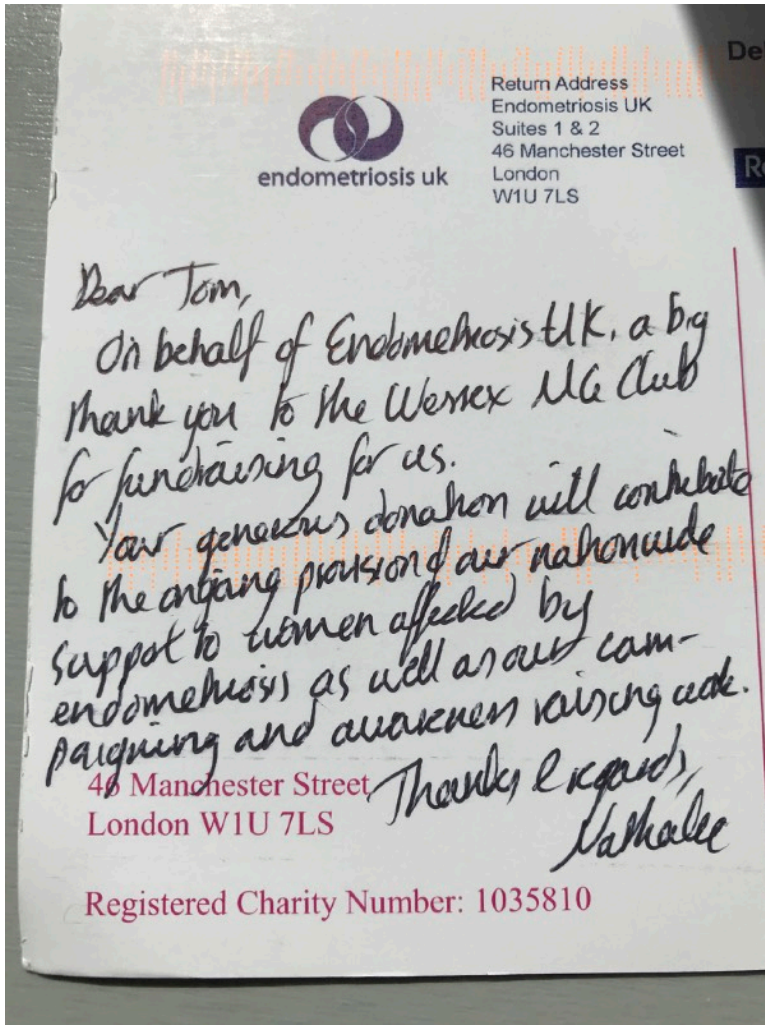 De
Return Address
Endometriosis UK
Suites 1 & 2
46 Manchester Street
London
W1U 7LS
R
endometriosis uk
Dear Tom,
On behalf of Endometriosis UK, a big
thank you to the Wessex MG Club
for fundraising for us.
Your generous donation will contribute
to the ongoing provision of our nationwide
support to women affected by
endometriosis as well as our cam-
paigning and awareness raising work.
Thanks & regards,
Nathalie
46 Manchester Street
London W1U 7LS
Registered Charity Number: 1035810